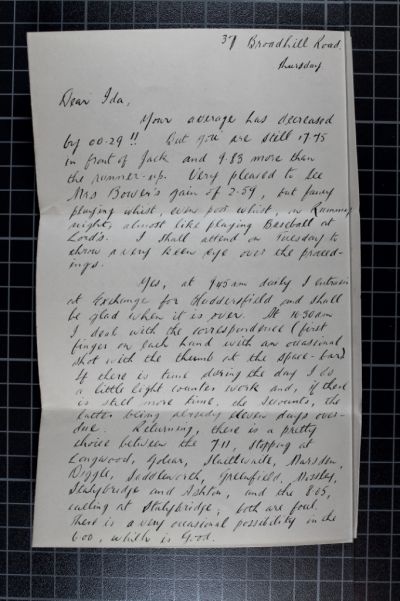 37 Broadhill Road.
Thursday
Dear Ida,
Your average has decreased
by 00.29 !! But you are still 17.75
in front of Jack and 9.83 more than
the runner-up. Very pleased to see
Mrs Bower's gain of 2.59, but fancy
playing whist, even poor whist, on Rummy
night, almost like playing Baseball at
Lord's. I shall attend on Tuesday to
throw a very keen eye over the proceed-
ings.
Yes, at 9.45am daily I entrain
at Exchange for Huddersfield and shall
be glad when it is over. At 10.30am
I deal with the correspondence (first
finger on each hand with an occasional
shot with the thumb at the space-bar)
If there is time during the day I do
a little light counter work and, if there
is still more time, do accounts, the
latter being already eleven days over-
due. Returning, there is a pretty
choice between the 7.11, stopping at
Longwood, Golcar, Slaithwaite, Marsden,
Diggle, Saddleworth, Greenfield, Mossley,
Stalybridge and Ashton, and the 8.05,
calling at Stalybridge; both are foul.
There is a very occasional possibility on the
6.00, which is Good.